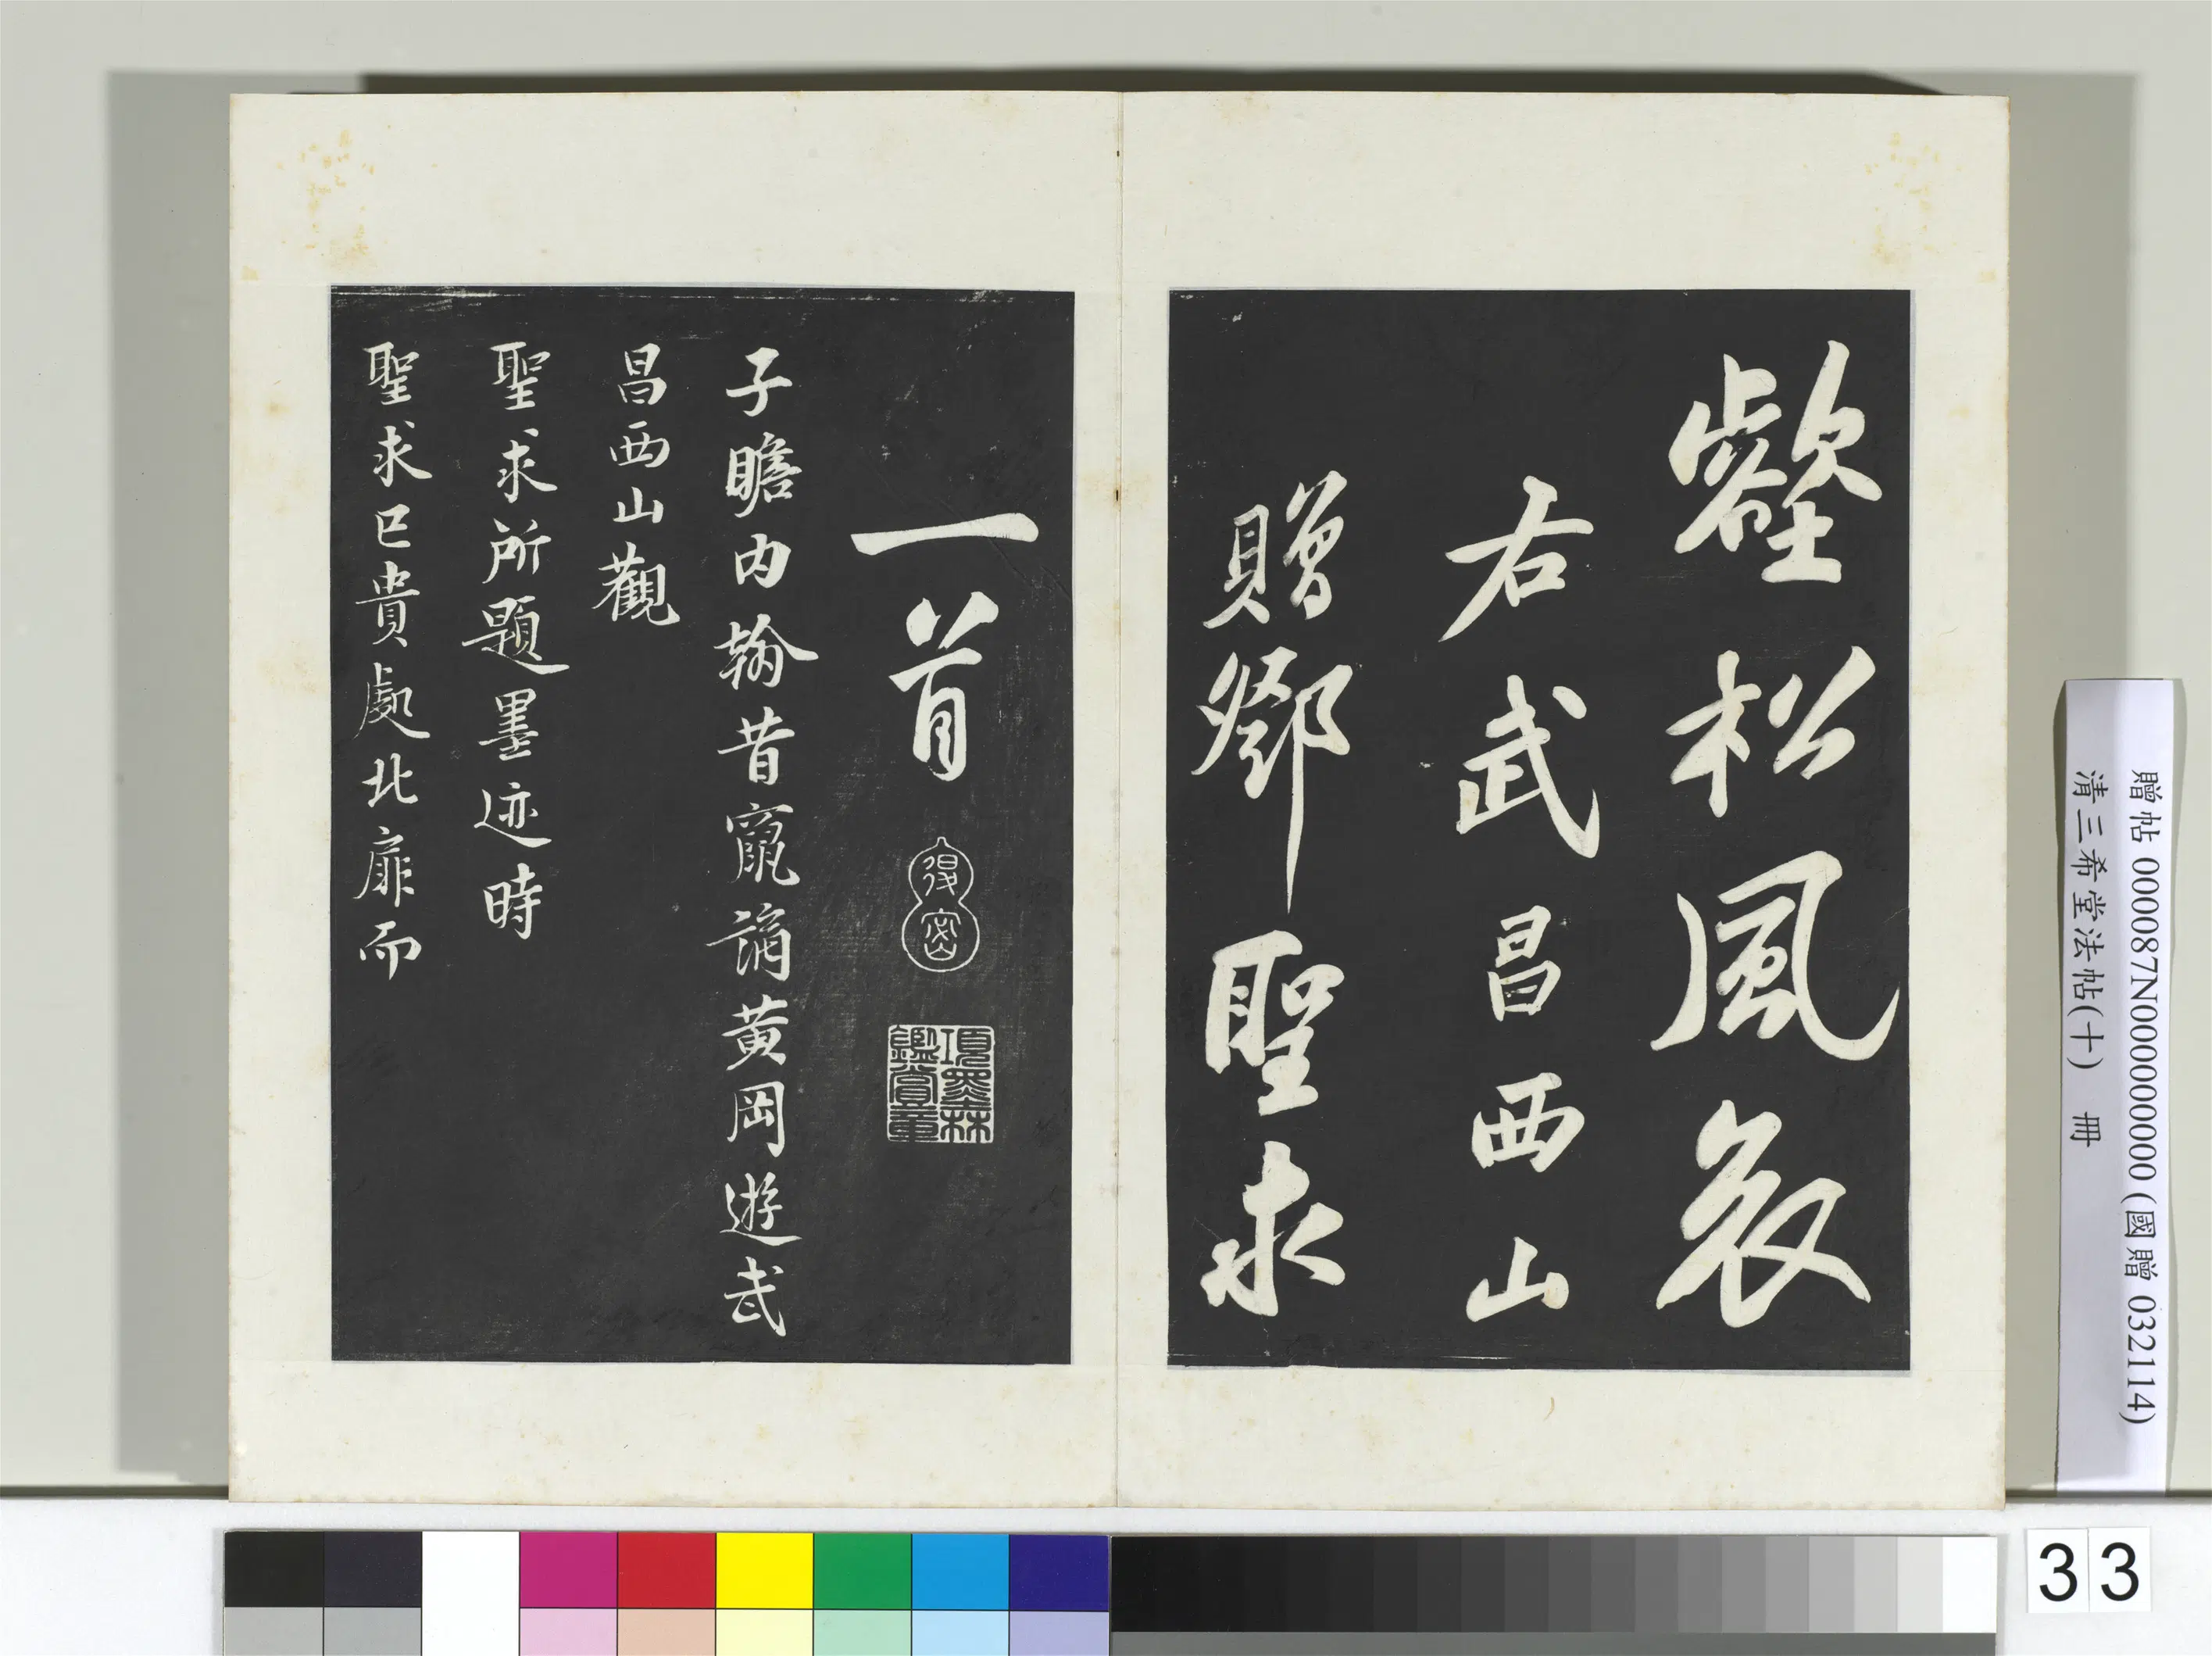 壑松風哀
右武昌西山
贈鄧聖求
一首
得密
項墨林鑑賞章
子瞻内翰昔竄謫黃岡遊武
昌西山觀
聖求所題墨迹時
聖求已貴處北扉而
贈帖 000087N000000000 (國贈 032114)
清三希堂法帖(十) 冊
33